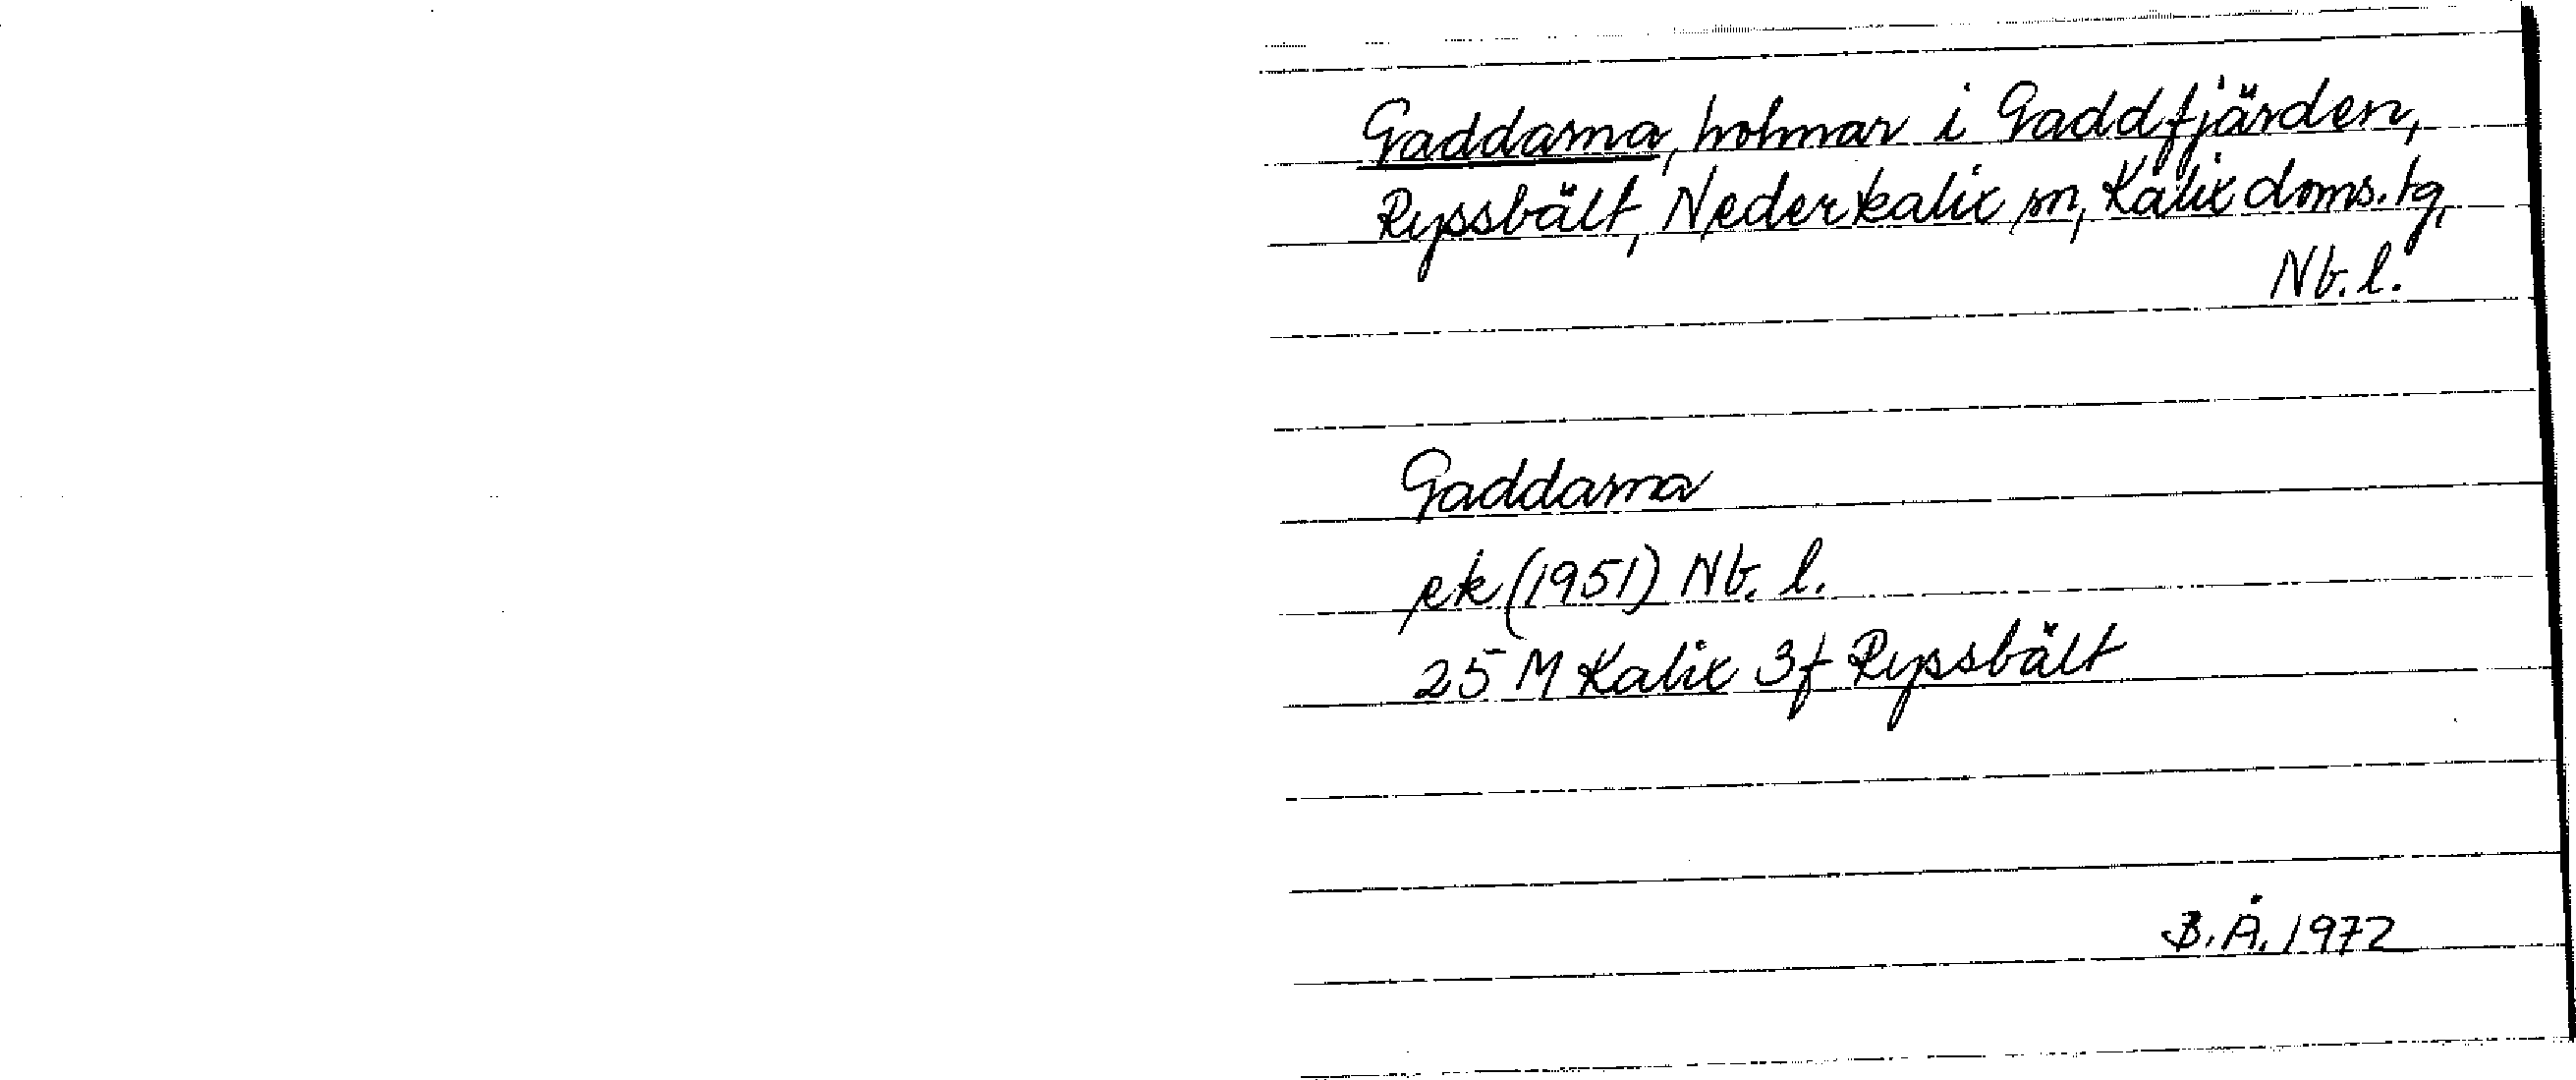 Gaddarna, holmar i Gaddfjärden,
Ryssbält, Nederkalix sn, Kalix doms.tg,
Nb.l.
Gaddarna
ek (1951) Nb. l.
25 M Kalix 3f Ryssbält
B.Å. 1972